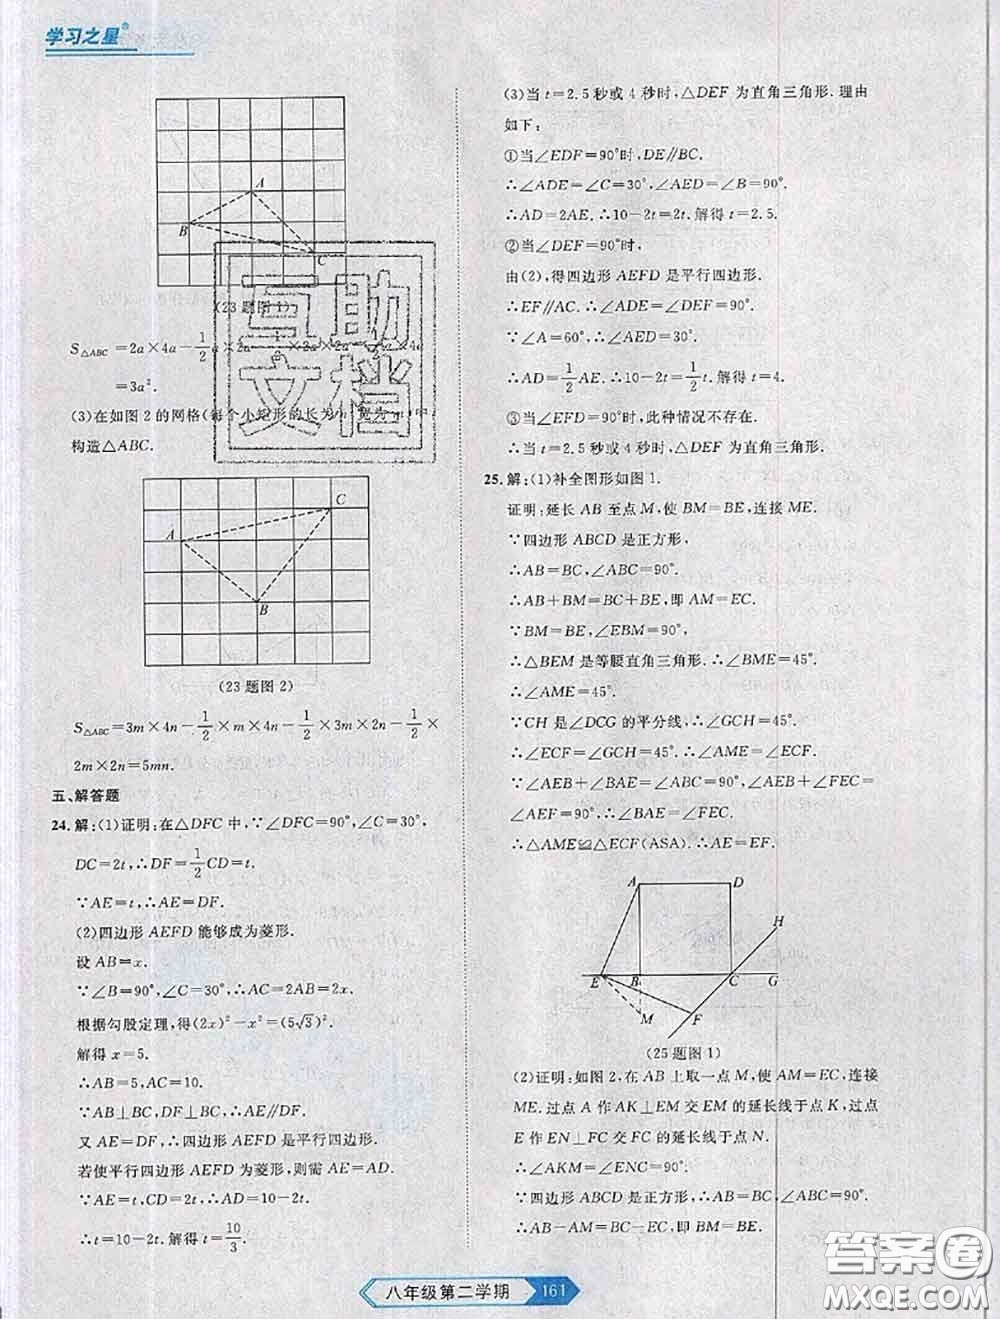 学习之星®
A
B
C
(23题图1)
S△ABC=2a×4a-1/2a×2a-1/2×2a×2a-1/2a×4a
=3a².
(3)在如图2的网格(每个小矩形的长为
构造△ABC.
C
A
B
(23题图2)
S△ABC=3m×4n-1/2×m×4n-1/2×3m×2n-1/2×
2m×2n=5mn.
五、解答题
24.解:(1)证明:在△DFC中,∵∠DFC=90°,∠C=30°,
DC=2t,∴DF=1/2CD=t.
∵AE=t,∴AE=DF.
(2)四边形AEFD能够成为菱形.
设AB=x.
∵∠B=90°,∠C=30°,∴AC=2AB=2x.
根据勾股定理,得(2x)²-x²=(5√3)².
解得x=5.
∴AB=5,AC=10.
∵AB⊥BC,DF⊥BC,∴AE∥DF.
又AE=DF,∴四边形AEFD是平行四边形.
若使平行四边形AEFD为菱形,则需AE=AD.
∵AE=t,CD=2t,∴AD=10-2t.
∴t=10-2t.解得t=10/3.
(3)当t=2.5秒或4秒时,△DEF为直角三角形.理由
如下:
①当∠EDF=90°时,DE∥BC.
∴∠ADE=∠C=30°,∠AED=∠B=90°.
∴AD=2AE.∴10-2t=2t.解得t=2.5.
②当∠DEF=90°时,
由(2),得四边形AEFD是平行四边形.
∴EF∥AC.∴∠ADE=∠DEF=90°.
∵∠A=60°,∴∠AED=30°.
∴AD=1/2AE.∴10-2t=1/2t.解得t=4.
③当∠EFD=90°时,此种情况不存在.
∴当t=2.5秒或4秒时,△DEF为直角三角形.
25.解:(1)补全图形如图1.
证明:延长AB至点M,使BM=BE,连接ME.
∵四边形ABCD是正方形,
∴AB=BC,∠ABC=90°.
∴AB+BM=BC+BE,即AM=EC.
∵BM=BE,∠EBM=90°,
∴△BEM是等腰直角三角形.∴∠BME=45°.
∴∠AME=45°.
∵CH是∠DCG的平分线,∴∠GCH=45°.
∴∠ECF=∠GCH=45°.∴∠AME=∠ECF.
∵∠AEB+∠BAE=∠ABC=90°,∠AEB+∠FEC=
∠AEF=90°,∴∠BAE=∠FEC.
∴△AME≌△ECF(ASA).∴AE=EF.
A
D
H
E
B
C
G
M
F
(25题图1)
(2)证明:如图2,在AB上取一点M,使AM=EC,连接
ME.过点A作AK⊥EM交EM的延长线于点K,过点
E作EN⊥FC交FC的延长线于点N.
∴∠AKM=∠ENC=90°.
∵四边形ABCD是正方形,∴AB=BC,∠ABC=90°.
∴AB-AM=BC-EC,即BM=BE.
互助
文档
答案圈
MXQE.COM
八年级第二学期 161